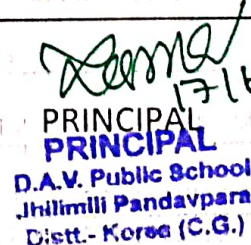 17/
PRINCIPAL
PRINCIPAL
D.A.V. Public School
Jhilimili Pandavpara
Distt.- Korea (C.G.)